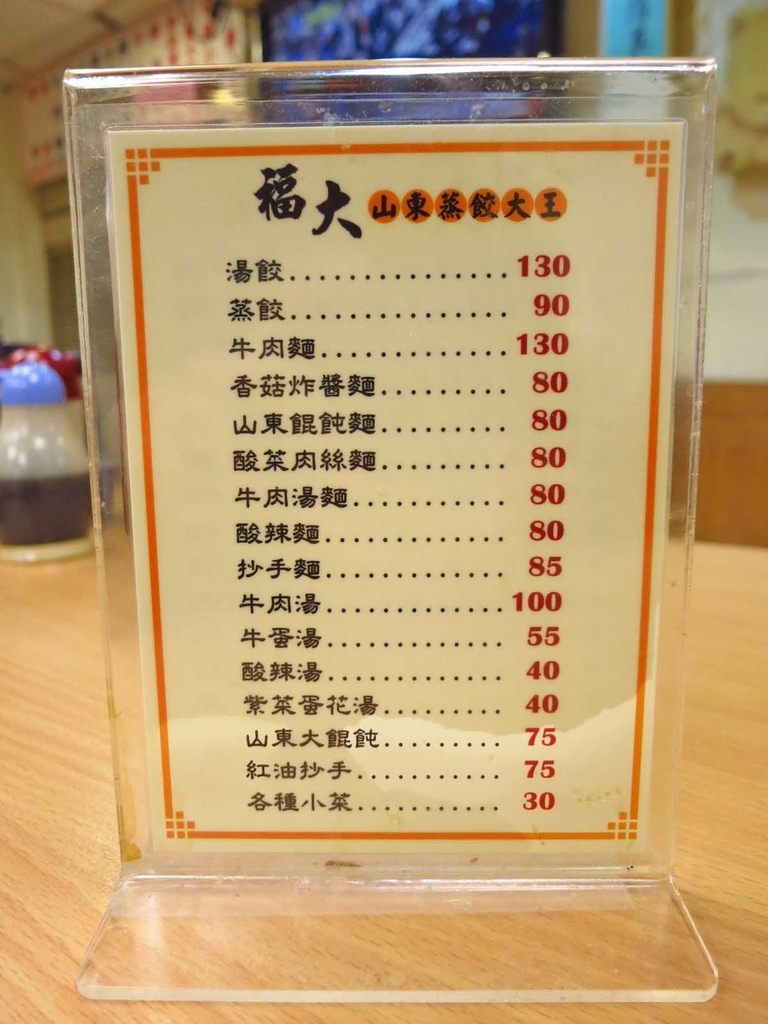 福大 山東蒸餃大王
湯餃...............130
蒸餃............... 90
牛肉麵.............130
香菇炸醬麵......... 80
山東餛飩麵......... 80
酸菜肉絲麵......... 80
牛肉湯麵........... 80
酸辣麵............. 80
抄手麵............. 85
牛肉湯.............100
牛蛋湯............. 55
酸辣湯............. 40
紫菜蛋花湯......... 40
山東大餛飩......... 75
紅油抄手........... 75
各種小菜........... 30